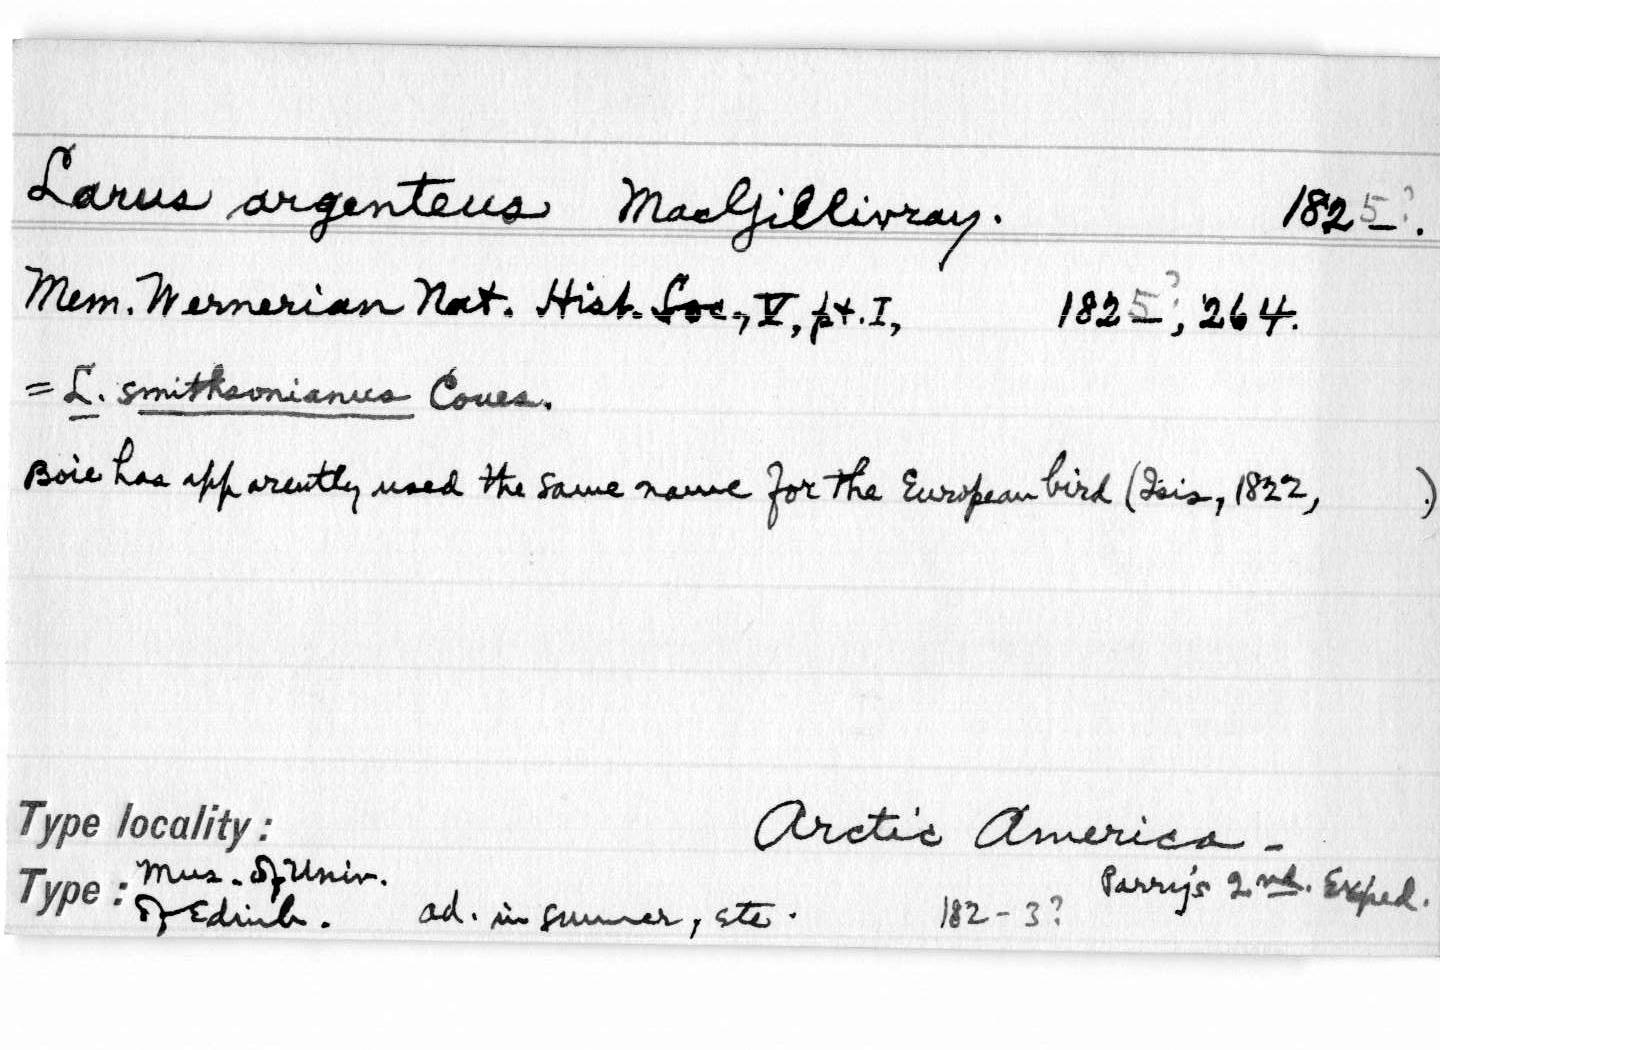 Larus argenteus MacGillivray. 1825?.
Mem. Wernerian Nat. Hist. Soc., V, pt. I, 1825?, 264.
= L. smithsonianus Coues.
Boie has apparently used the same name for the European bird (Isis, 1822, .)
Type locality: Arctic America -
Parry's 2nd. Exped.
Type: Mus. of Univ.
of Edinb. ad. in summer, etc. 182-3?